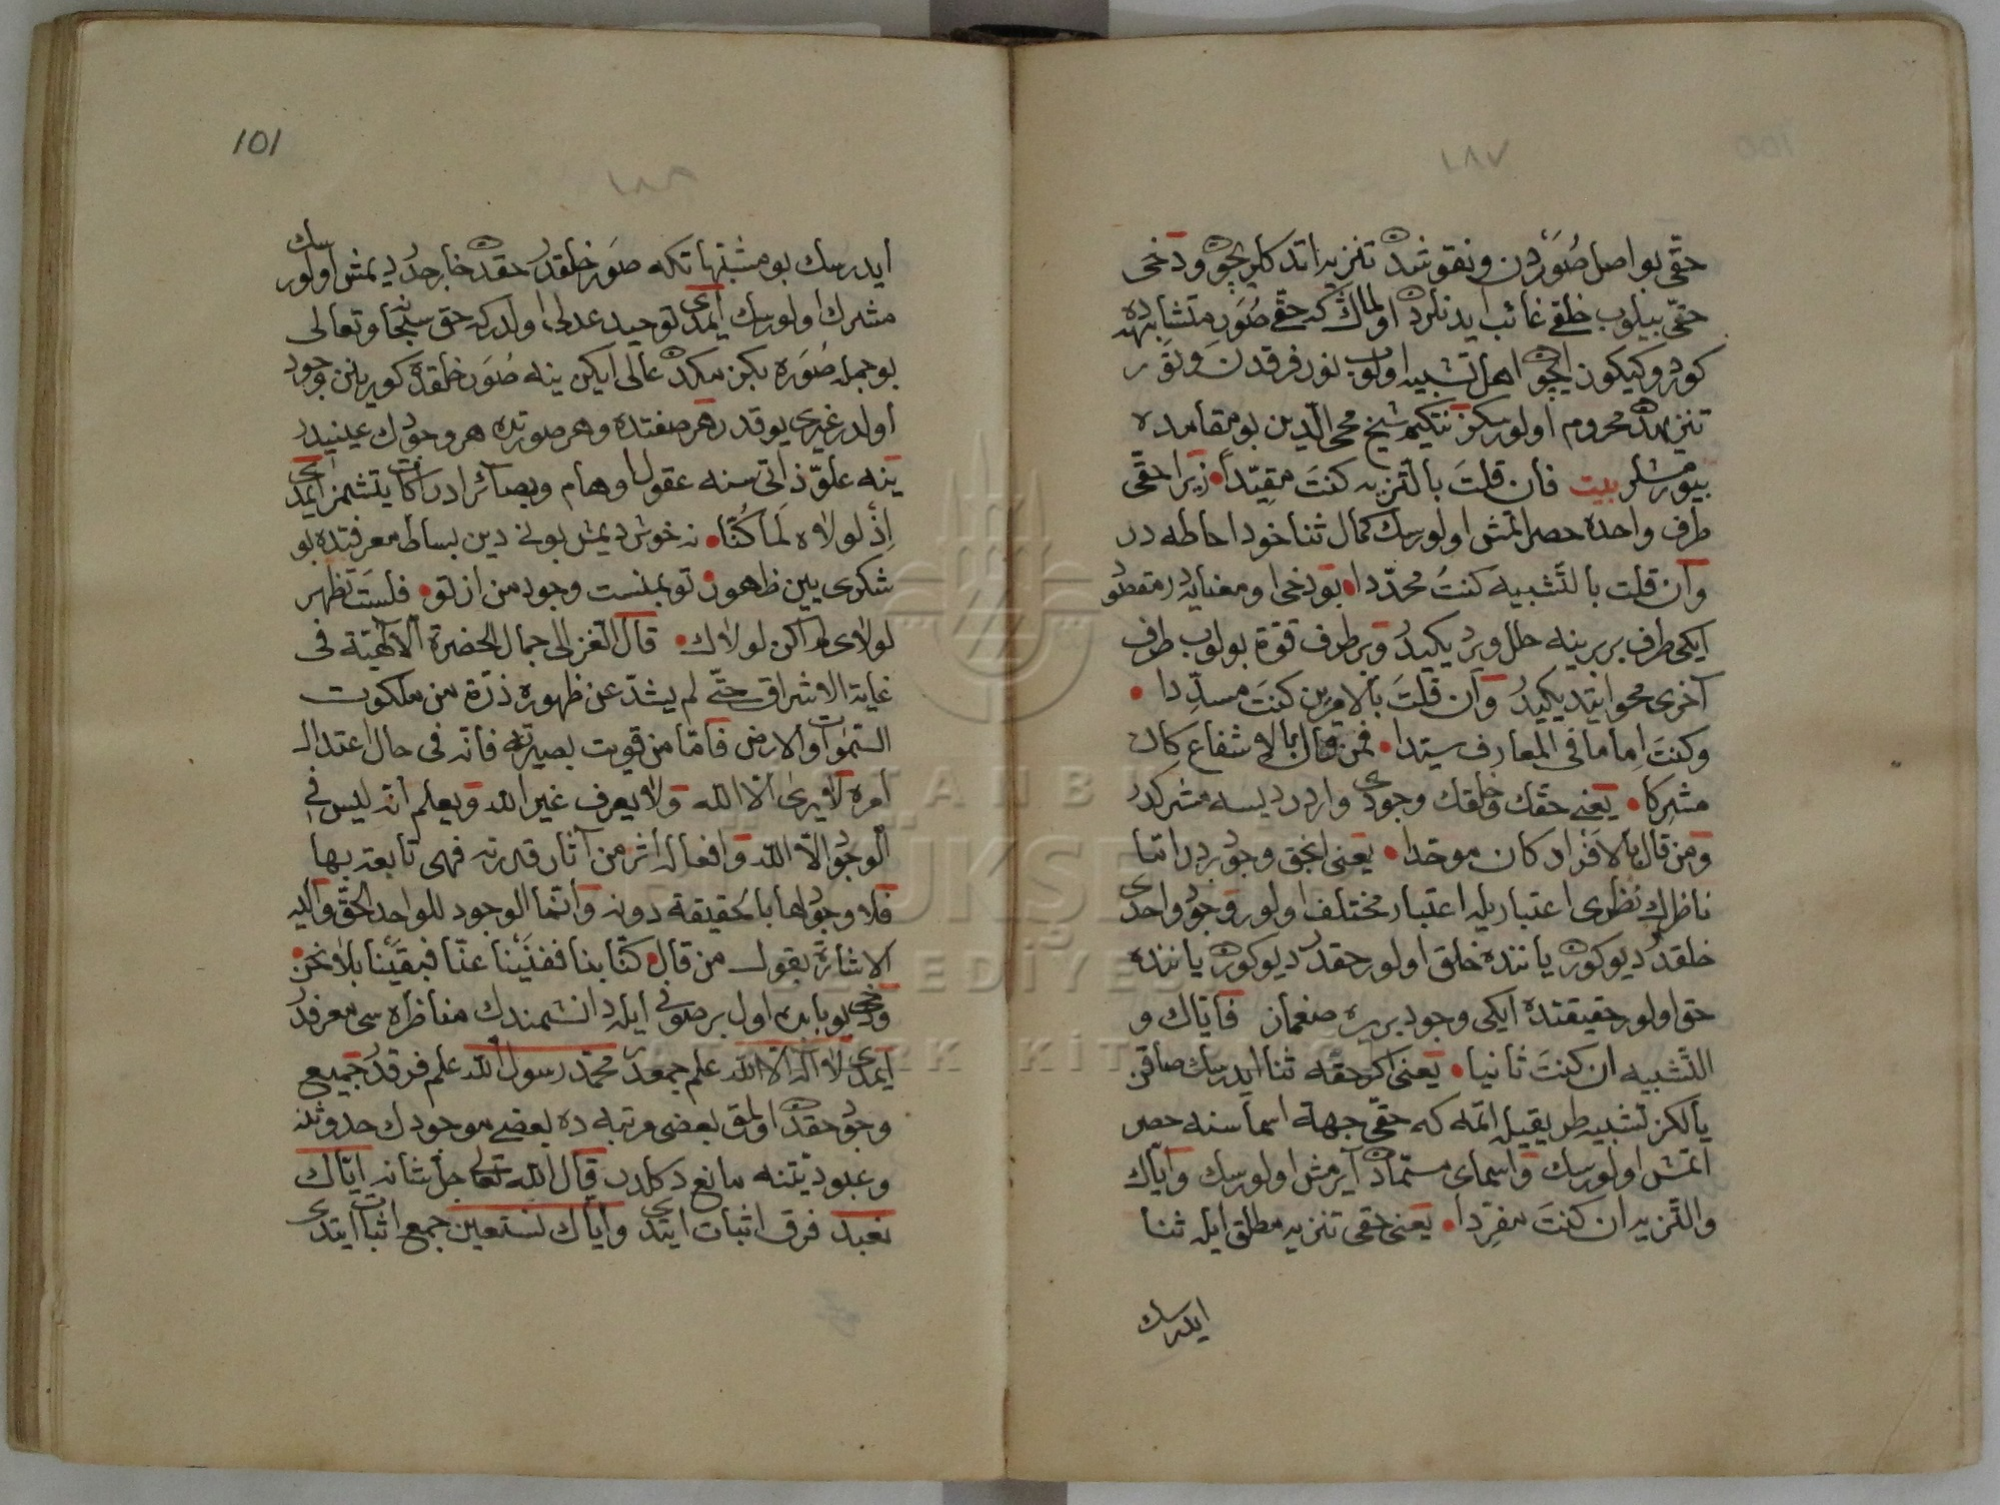 ١٨٧
حقّی بو اصل صُوَردن و نقوشدن تنزیه اتدکلریچون و دخی
حقّی بیلوب خلقی غائب ایدنلردن اولماڭ که حقّی صُوَر متشابهده
کورر وکیکون ایچون اهل تشبیه اولوب نور فرقدن و نور
تنزیهدن محروم اولورسکز نتکیم شیخ محی الدین بو مقامده
بیورمشلر بیت فان قلتَ بالتنزیه کنتَ مقیّداً زیرا حقّی
طرف واحده حصر اتمش اولورسك کمال ثنا خود احاطه در
وان قلت بالتشبیه کنتُ محدّدا بو دخی او معنایه در
ایکی طرف بربرینه خلل ویردیکیدر و بر طرف قوّة بولوب طرف
آخری محو ایتدیکیدر وان قلتَ بالامرین کنتَ مسدّدا
وکنتَ اماما فی المعارف سیّدا فمن قال بالاشفاع کان
مشرکا یعنی حقّك و خلقك وجودی واردر دیسه مشرکدر
ومن قال بالافراد کان موحّدا یعنی انجق وجود بردر امّا
ناظرك نظری اعتباریله اعتبار مختلف اولور وجود واحدی
خلقدر دیو کورن یاننده خلق اولور حقدر دیو کورن یاننده
حق اولور حقیقتده ایکی وجود بر یره صغماز فایّاك و
التّشبیه ان کنتَ ثانیا یعنی اکر حقّه ثنا ایدرسك صاقن
یالکز تشبیه طریقیله اتمه که حقّی جهة اسماسنه حصر
اتمش اولورسك و اسمای مسمّادن آیرمش اولورسك وایّاك
والتّنزیه ان کنتَ مفرِدا یعنی حقی تنزیه مطلق ایله ثنا
ایدرسك
101
ایدرسك بو مشبّهاتکه صوَر خلقدر حقدن خارجدر دیمش اولورسك
مشرك اولورسك ایمدی توحید عدلی اولدرکه حق سبحانه وتعالی
بو جمله صُوَره بکزمکدن عالی ایکن ینه صُوَر خلقدن کورینن وجود
اولدر غیری یوقدر هر صفتده و هر صورتده هر وجودك عینیدر
ینه علوّ ذاتی سنه عقول اوهام و بصائر ادراکات یتشمز ایمدی
اِذْ لولاه لَمَا کُنّا نه خوش دیمش بونی دین بساط معرفتده بو
شکری یین ظهور تو بمنست وجود من از تو فلستَ تظهر
لولای لم اکن لولاك قال الغزالی جمال الحضرة الالٰهیّة فی
غایة الاشراق حتّی لم یشدّ عن ظهوره ذرّة من ملکوت
السّموات والارض فامّا من قویت بصیرته فانّه فی حال اعتدال
امره لا یری الّا اللّه ولا یعرف غیر اللّه و یعلم انّه لیس فی
الوجود الّا اللّه وافعاله اثر من آثار قدرته فهی تابعة بها
فلا وجود لها بالحقیقة دونه وانّما الوجود للواحد الحقّ والیه
الاشارة بقول من قال کنّا بنا ففنَیْنا عنّا فبقینا بلا نحن
ودخی بو بابده اول بر صوفی ایله دانشمندك مناظره سی معرفدر
ایمدی لا اله الا اللّه علم جمعدر محمّد رسول اللّه علم فرقدر جمیع
وجود حقدن اولمق بعضی مرتبه ده بعضی موجودك حدوثنه
وعبودیّتنه مانع دکلدر قال اللّه تعالی جلّ شانه ایّاك
نعبد فرق اثبات ایتدی وایّاك نستعین جمع اثبات ایتدی